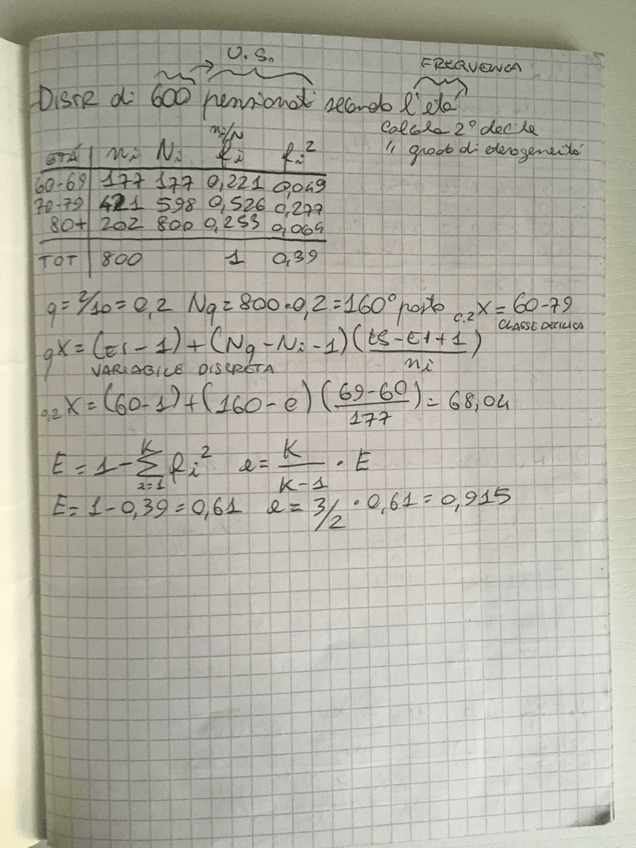 U.S.
FREQUENCA
DISTR di 600 pensionati secondo l'età
calcola 2° decile
" grado di eterogeneità
ni/N
ETÀ ni Ni fi fi²
60-69 177 177 0,221 0,049
70-79 421 598 0,526 0,277
80+ 202 800 0,253 0,064
TOT 800 1 0,39
q = 2/10 = 0,2 Nq = 800·0,2 = 160° posto 0,2X = 60-79
CLASSE DECILICA
qX = (EI-1)+(Nq-Ni-1)(ES-EI+1/ni)
VARIABILE DISCRETA
0,2X = (60-1)+(160-0)(69-60/177) = 68,04
E = 1-∑fi² e = K/K-1 · E
K
i=1
E = 1-0,39 = 0,61 e = 3/2 · 0,61 = 0,915